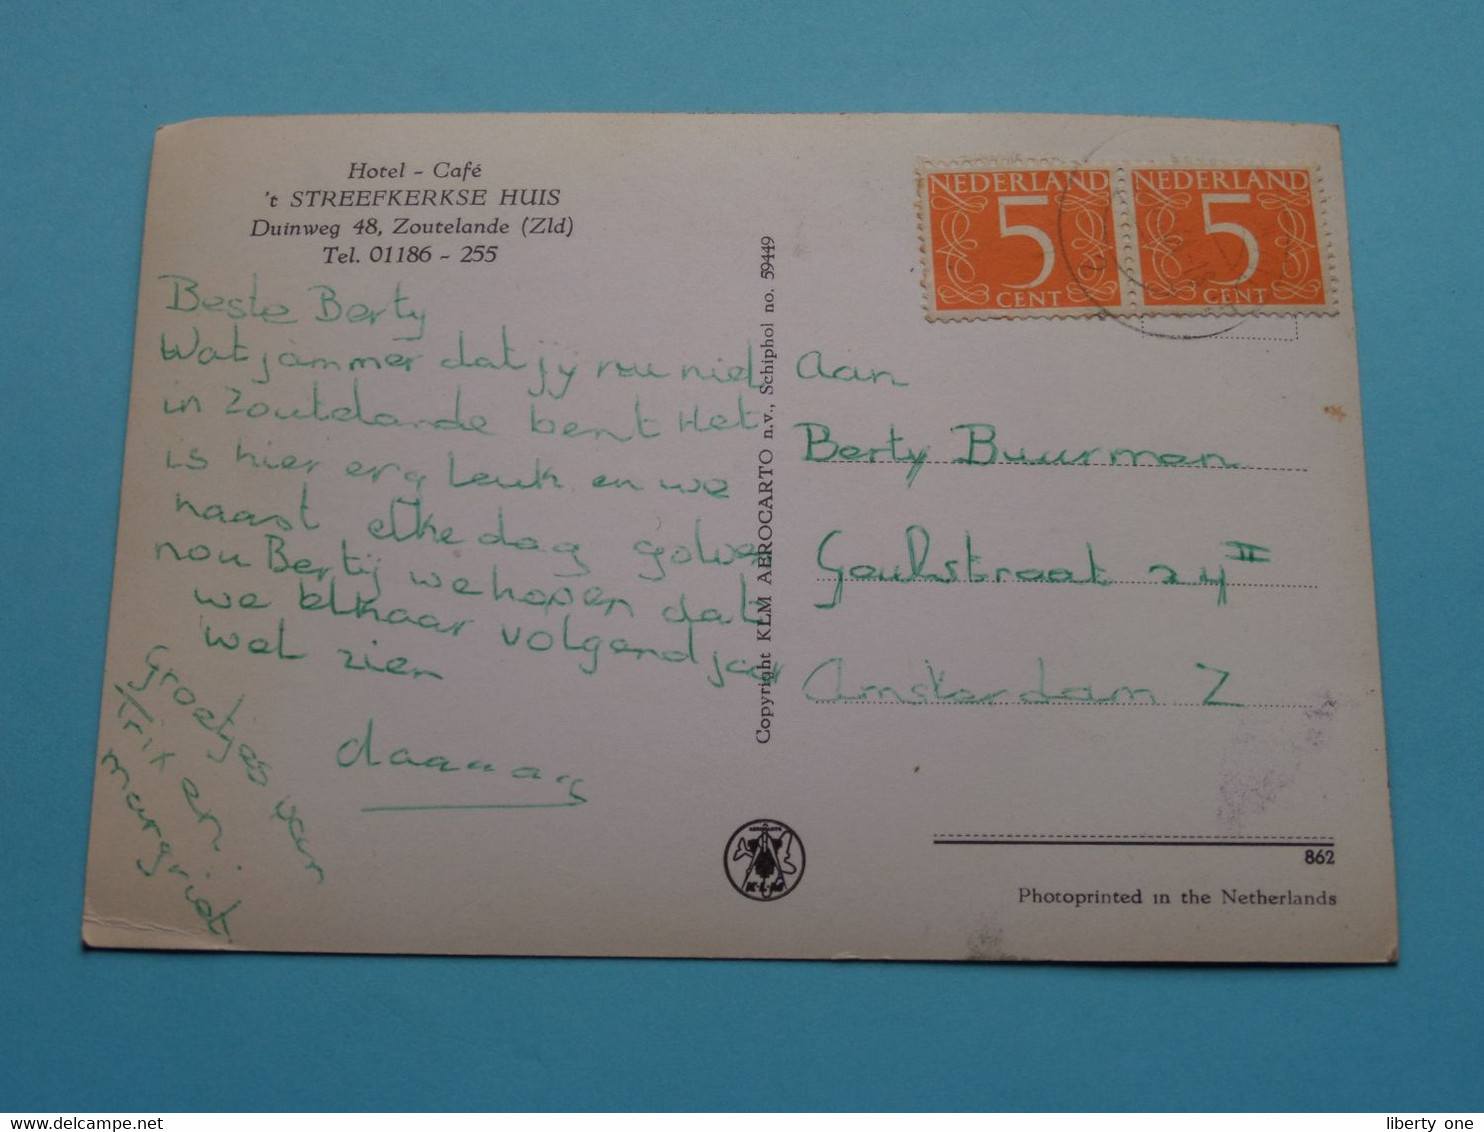 Hotel - Café
't STREEFKERKSE HUIS
Duinweg 48, Zoutelande (Zld)
Tel. 01186 - 255
Beste Berty
Wat jammer dat jy nu niet
in Zoutelande bent Het
is hier erg leuk en we
naast elke dag golven
nou Bertij we hopen dat
we elkaar volgend jaar
wel zien
daaaag
Groetjes van
Trix en
margriet
Copyright KLM AEROCARTO n.v., Schiphol no. 59449
NEDERLAND
5
CENT
NEDERLAND
5
CENT
aan
Berty Buurman
straat 24 II
Amsterdam Z
AEROCARTO
K.L.M
862
Photoprinted in the Netherlands
liberty one